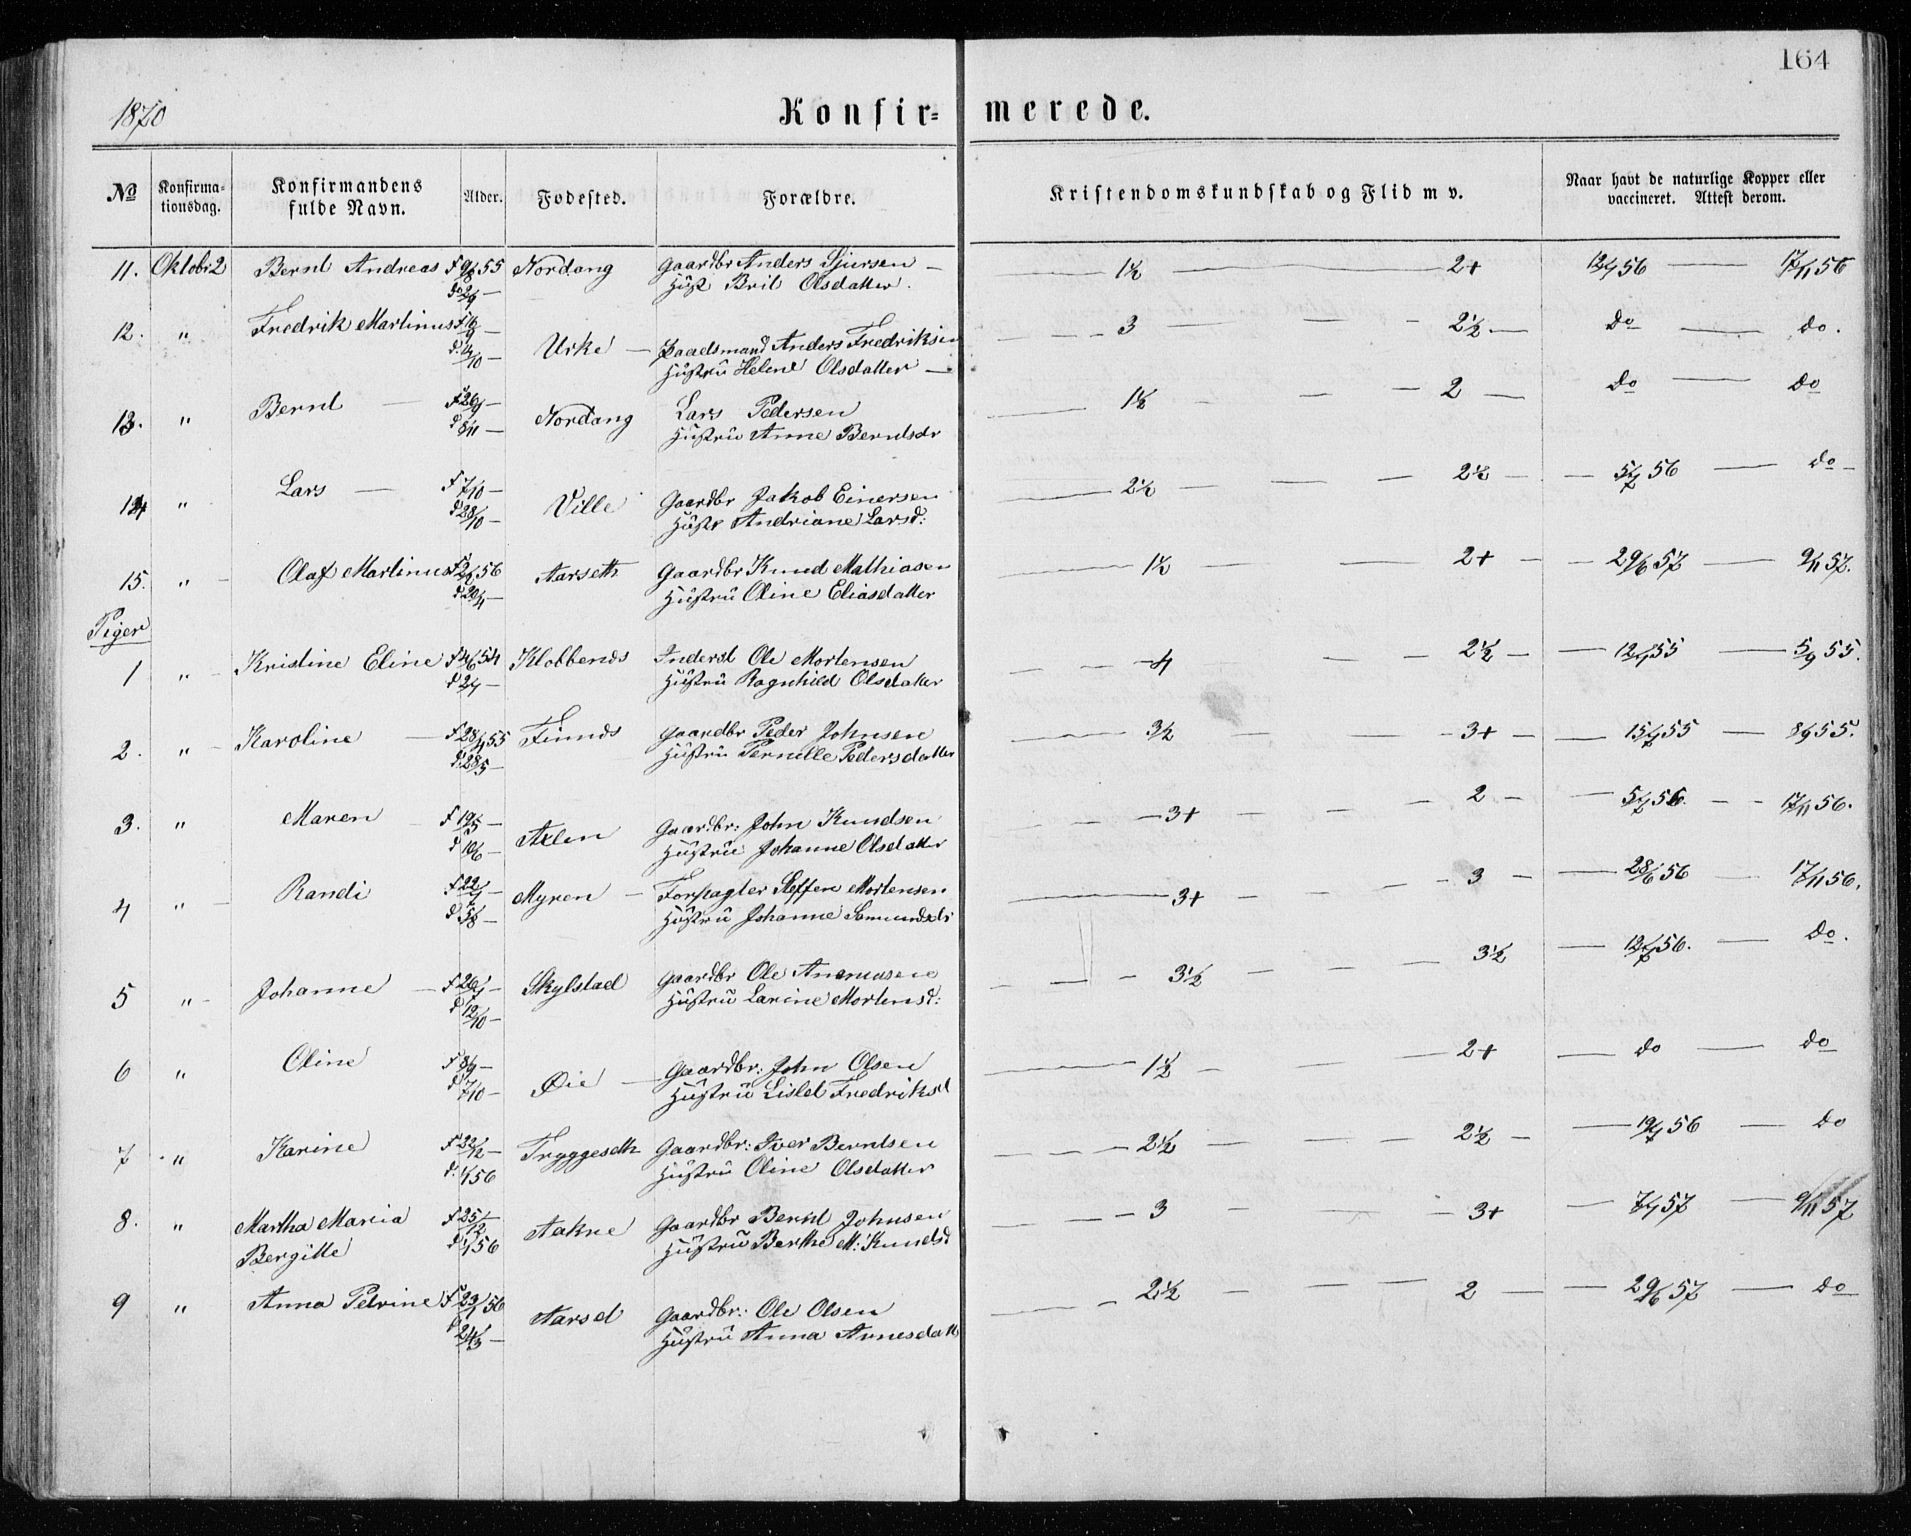 164
1870 Konfir= merede.
No Konfirma=tionsdag. Konfirmandens fulde Navn. Alder. Fodested. Forældre. Kristendomskundskab og Flid m v. Naar havt de naturlige Kopper eller vaccineret. Attest derom.
11. Oktobr 2 Bernt Andreas Nordang Gaardbr Anders Sjursen — 1½ — 2+ — 17/11 56
Hust Brit Olsdatter.
12. " Fredrik Martinus Urke — Anders Fredriksen — 3 — 2½ — Do — do.
Hustru Helene Olsdatter —
13. " Bernt — Nordang Lars Pedersen — 1½ — 2 — Do — Do
d 8/11 — Hustru Anne Berntsdr
14 " Lars — F 7/10 — Ville Gaardbr Jakob Einersen — 2½ — 2½ — 5/7 56 — do
d 28/10 — Hustr Andriane Larsd:
15. " Olaf Martinus Aarseth Gaardbr Knud Mathiasen — 1½ — 2+ — 29/6 57 — 9/11 57.
Hustru Oline Eliasdatter
Piger
1 " Kristine Eline Klobbends Inderst Ole Mortensen — 4 — 2½ — — 5/9 55.
Hustru Ragnhild Olsdatter
2. " Karoline — F 28/4 55 Finnds Gaardbr Peder Johnsen — 3½ — 3+ — 15/7 55 — 8/9 55.
d. 28/5 — Hustru Pernille Pedersdatter
3. " Maren F 19/5 — Aklen Gaardbr: John Knudsen — 3+ — 2 — 5/7 56. — 17/11 56.
d 10/6 — Hustru Johanne Olsdatter
4 " Randi F 22/7 — Myren — Forpagter Steffen Mortensen — 3+ — 3 — 28/6 56 — 17/11 56.
d 5/8 — Hustru Johanne
5 " Johanne — Skylstad Gaardbr Ole — 3½ — 3½ — 12/7 56. — Do.
d 12/10 — Hustru Larine Mortensd:
6 " Oline F 8/9 — Øie — Gaardbr: John Olsen — 1½ — 2+ — do — do
d 7/10 — Hustru Lislel Fredriksd
7 " Karine F 22/12 — Tryggeseth Gaardbr: Iver Berntsen — 2½ — 2½ — 19/7 56 — Do
d. 1/1 56 Hustru Oline Olsdatter
8. " Martha Maria F 25/12 Aakne Gaardbr Bernt Johnsen — 3 — 3+ — 7/7 57 — 9/11 57
Bergitte d 1/1 56 Hustru Berthe M: Knudsd
9 " Anna Petrine F 23/1 56 Aarsd Gaardbr: Ole Olsen — 2½ — 2 — 29/6 57 — Do
d 24/3 — Hustru Anna Arnesdatt